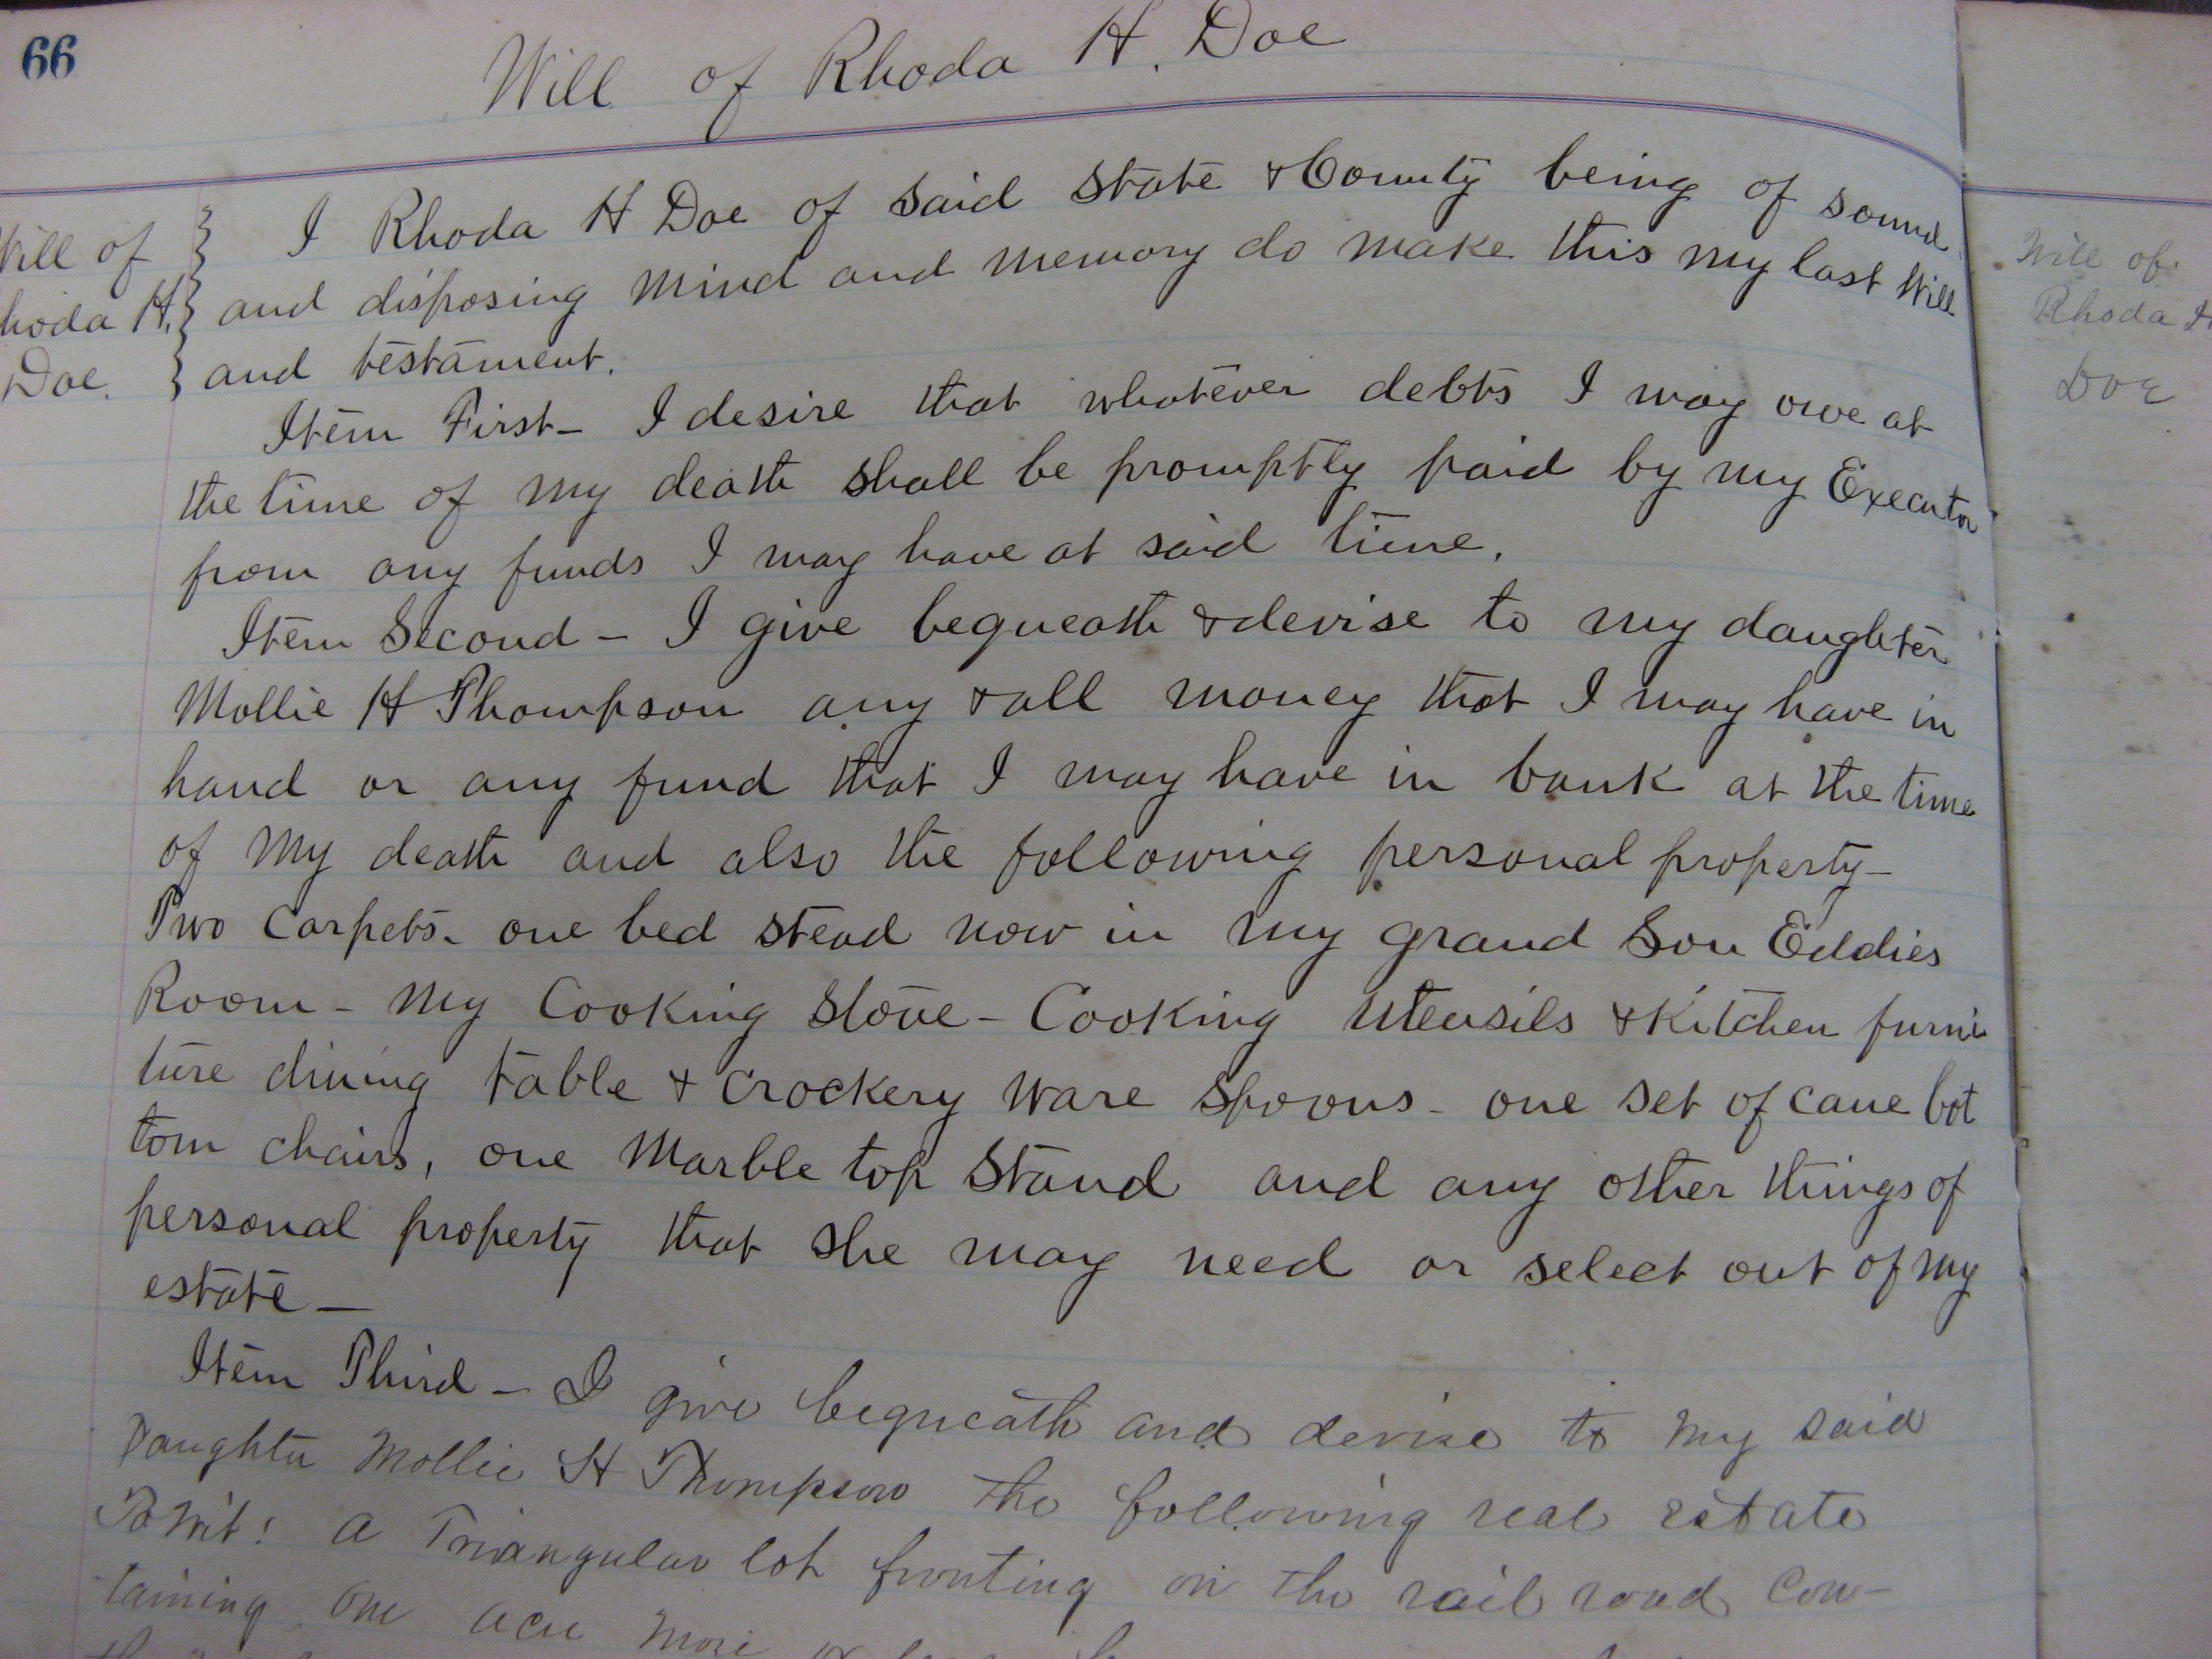 66
Will of Rhoda H. Doe
Will of
Rhoda H.
Doe.
I Rhoda H Doe of said State & County being of sound
and disposing mind and memory do make this my last Will
and testament.
Item First - I desire that whatever debts I may owe at
the time of my death shall be promptly paid by my Executor
from any funds I may have at said time.
Item Second - I give bequeath & devise to my daughter
Mollie H Thompson any & all money that I may have in
hand or any fund that I may have in bank at the time
of my death and also the following personal property -
Two Carpets - one bed stead now in my grand Son Eddies
Room - my Cooking Stove - Cooking Utensils & Kitchen furni
ture dining table & Crockery ware Spoons - one set of cane bot
tom chairs, one Marble top Stand and any other things of
personal property that she may need or select out of my
estate -
Item Third - I give bequeath and devise to my said
Daughter Mollie H Thompson the following real estate
To wit: A Triangular lot fronting on the rail road Con-
taining one acre more or less
Will of
Rhoda H
Doe